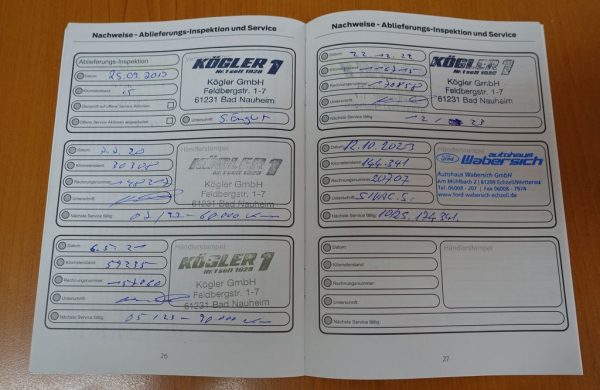 Nachweise - Ablieferungs-Inspektion und Service
Ablieferungs-Inspektion
Datum: 25.09.2017
Kilometerstand: 15
Überprüft auf offene Service Aktionen
Offene Service Aktionen abgearbeitet
Unterschrift:
KÖGLER 1
Nr. 1 seit 1928
Kögler GmbH
Feldbergstr. 1-7
61231 Bad Nauheim
Datum:
Kilometerstand: 30308
Rechnungsnummer:
Unterschrift:
Nächste Service fällig: 02/22 - 60000 km
Händlerstempel
KÖGLER 1
Nr. 1 seit 1928
Kögler GmbH
Feldbergstr. 1-7
61231 Bad Nauheim
Datum: 6.5.21
Kilometerstand: 59235
Rechnungsnummer:
Unterschrift:
Nächste Service fällig: 05/23 - 90000 km
Händlerstempel
KÖGLER 1
Nr. 1 seit 1928
Kögler GmbH
Feldbergstr. 1-7
61231 Bad Nauheim
26
Nachweise - Ablieferungs-Inspektion und Service
Datum: 22.12.22
Kilometerstand:
Rechnungsnummer:
Unterschrift:
Nächste Service fällig: 12/23
KÖGLER 1
Nr. 1 seit 1928
Kögler GmbH
Feldbergstr. 1-7
61231 Bad Nauheim
Datum: 12.10.2023
Kilometerstand: 144.341
Rechnungsnummer: 20707
Unterschrift:
Nächste Service fällig: 10/25 174341
Händlerstempel
Ford autohaus
Wabersich
Autohaus Wabersich GmbH
Am Mühlbach 2 / 61209 Echzell/Wetterau
Tel. 06008 - 207 | Fax 06008 - 7974
www.ford-wabersich-echzell.de
Datum:
Kilometerstand:
Rechnungsnummer:
Unterschrift:
Nächste Service fällig:
Händlerstempel
27